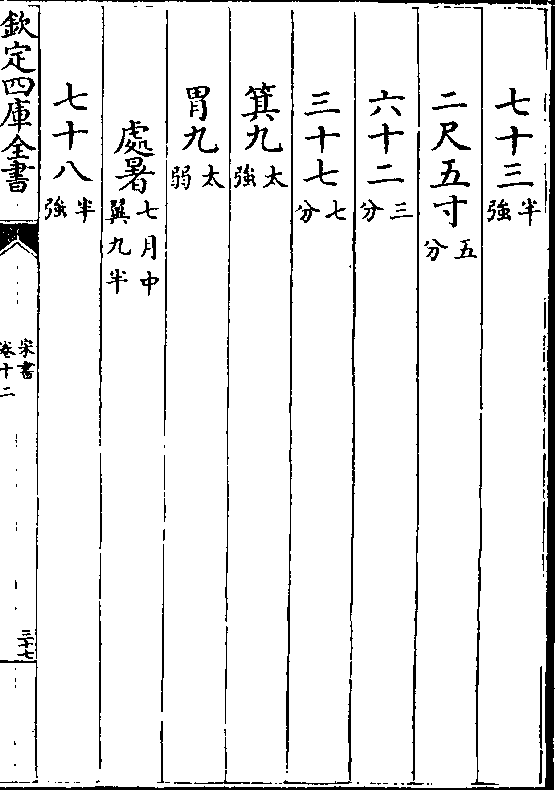 七十三半強
二尺五寸五分
六十二三分
三十七七分
箕九太強
胃九太弱
處暑七月中翼九半
七十八半強
欽定四庫全書
宋書
卷十二
三十七